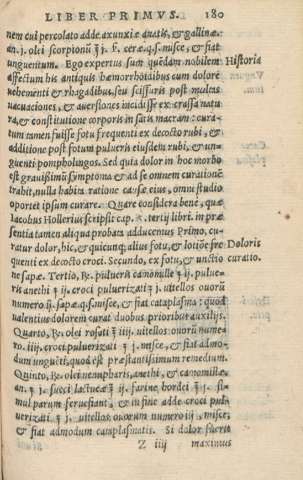 LIBER PRIMVS. 180
nem cui percolato adde axunxiæ anatis, & gallinæ.
an. ʒ. olei scorpionũ ʒ j. ß. ceræ.q.s.misce, & fiat
unguentum. Ego expertus sum quẽdam nobilem Historia
affectum his antiquis hæmorrhoidibus cum dolore
uehementi & rhagadibus, seu scissuris post multas
euacuationes, & auersiones incidisse ex crassa natu
ra, & constitutione corporis in satis macram : cura-
tum tamen fuisse fotu frequenti ex decocto rubi, &
additione post fotum pulueris eiusdem rubi, & un-
guenti pompholingos. Sed quia dolor in hoc morbo
est grauissimũ symptoma & ad se omnem curationē
trahit, nulla habita ratione causæ eius, omni studio
oportet ipsum curare. Quare considera benè, quæ
Iacobus Hollerius scripsit cap. tertij libri. in præ
sentia tamen aliqua probata adducemus Primo, cu-
ratur dolor, hic, & quicunq; alius fotu, & lotiõe fre Doloris
quenti ex decocto croci. Secundo, ex fotu, & unctio curatio.
ne sapæ. Tertio, ℞. pulueris camomille ʒ ij. pulue-
ris anethi ʒ ij. croci puluerizati ʒ j. uitellos ouorũ
numero ij. sapæ q.s.misce, & fiat cataplasma : quod
ualentius dolorem curat duobus prioribus auxilijs.
Quarto, ℞. olei rosati ʒ iiij. uitellos ouorũ nume-
ro. iiij. croci puluerizati ʒ j. misce, & fiat admo-
dum unguẽti, quod est præstantissimum remedium.
Quinto, ℞. olei nenupharis, anethi, & camomillæ
an. ʒ j. succi lactucæ ʒ ij. farinæ hordei ʒ j. si-
mul parum feruefiant, & in fine adde croci pul-
uerizati ʒ j. uitellos ouorum numero iij. misce,
& fiat admodum cataplasmatis. Si dolor fuerit
Z iiij maximus